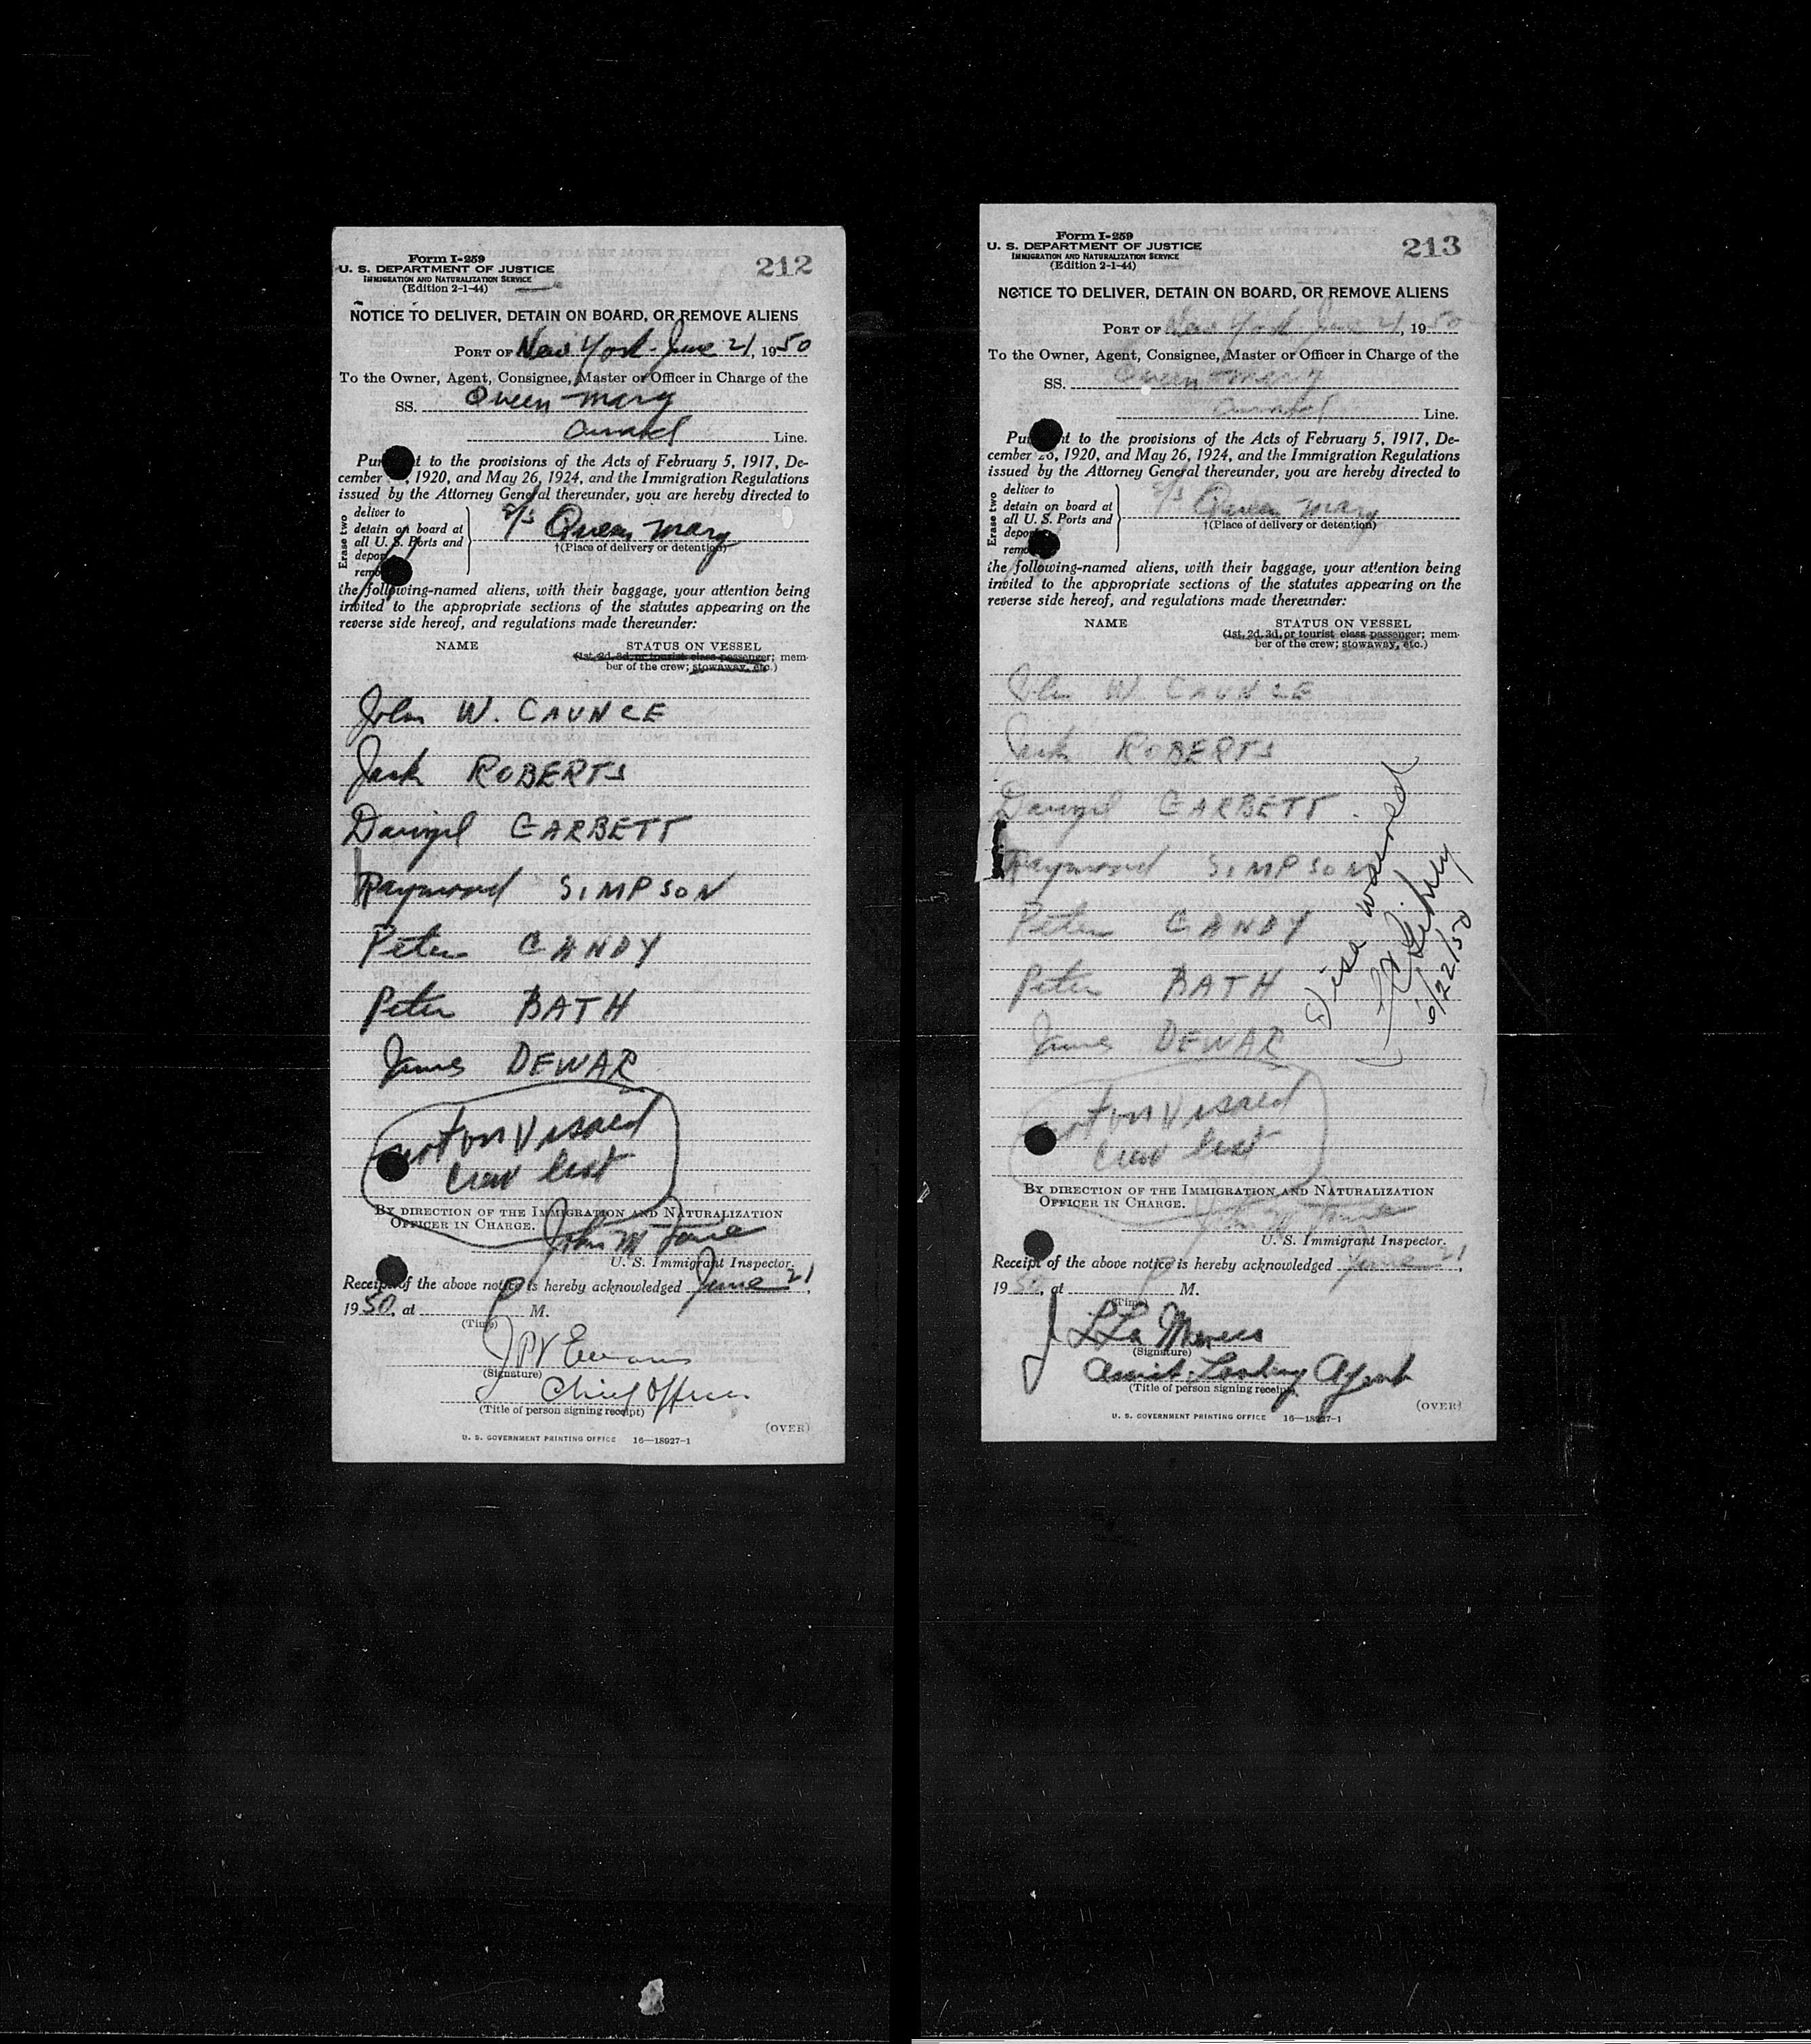 Form I-259
U. S. DEPARTMENT OF JUSTICE
IMMIGRATION AND NATURALIZATION SERVICE
(Edition 2-1-44)
212
NOTICE TO DELIVER, DETAIN ON BOARD, OR REMOVE ALIENS
PORT OF New York June 21, 1950
To the Owner, Agent, Consignee, Master or Officer in Charge of the
SS. Queen Mary
Cunard Line.
Pur t to the provisions of the Acts of February 5, 1917, De-
cember , 1920, and May 26, 1924, and the Immigration Regulations
issued by the Attorney General thereunder, you are hereby directed to
Erase two
deliver to
detain on board at
all U. S. Ports and
depor
remo
S/S Queen Mary
†(Place of delivery or detention)
the following-named aliens, with their baggage, your attention being
invited to the appropriate sections of the statutes appearing on the
reverse side hereof, and regulations made thereunder:
NAME STATUS ON VESSEL
(1st, 2d, 3d, or tourist class passenger; mem-
ber of the crew; stowaway, etc.)
John W. CAUNCE
Jack ROBERTS
GARBETT
Raymond SIMPSON
Peter CANDY
Peter BATH
James DEWAR
not on visaed
crew list
BY DIRECTION OF THE IMMIGRATION AND NATURALIZATION
OFFICER IN CHARGE.
John M
U. S. Immigrant Inspector.
Receipt of the above notice is hereby acknowledged June 21,
1950, at P M.
(Time)
J P V Evans
(Signature)
Chief Officer
(Title of person signing receipt)
(OVER)
U. S. GOVERNMENT PRINTING OFFICE 16—18927-1
Form I-259
U. S. DEPARTMENT OF JUSTICE
IMMIGRATION AND NATURALIZATION SERVICE
(Edition 2-1-44)
213
NOTICE TO DELIVER, DETAIN ON BOARD, OR REMOVE ALIENS
PORT OF New York June 21, 1950
To the Owner, Agent, Consignee, Master or Officer in Charge of the
SS. Queen Mary
Cunard Line.
Pur t to the provisions of the Acts of February 5, 1917, De-
cember 26, 1920, and May 26, 1924, and the Immigration Regulations
issued by the Attorney General thereunder, you are hereby directed to
Erase two
deliver to
detain on board at
all U. S. Ports and
depor
remo
S/S Queen Mary
†(Place of delivery or detention)
the following-named aliens, with their baggage, your attention being
invited to the appropriate sections of the statutes appearing on the
reverse side hereof, and regulations made thereunder:
NAME STATUS ON VESSEL
(1st, 2d, 3d, or tourist class passenger; mem-
ber of the crew; stowaway, etc.)
John W. CAUNCE
Jack ROBERTS
GARBETT
Raymond SIMPSON
Peter CANDY
Peter BATH
James DEWAR
Visa waived
6/22/50
not on visaed
crew list
BY DIRECTION OF THE IMMIGRATION AND NATURALIZATION
OFFICER IN CHARGE.
John M
U. S. Immigrant Inspector.
Receipt of the above notice is hereby acknowledged June 21,
1950, at P M.
(Time)
(Signature)
Agent
(Title of person signing receipt)
(OVER)
U. S. GOVERNMENT PRINTING OFFICE 16—18927-1